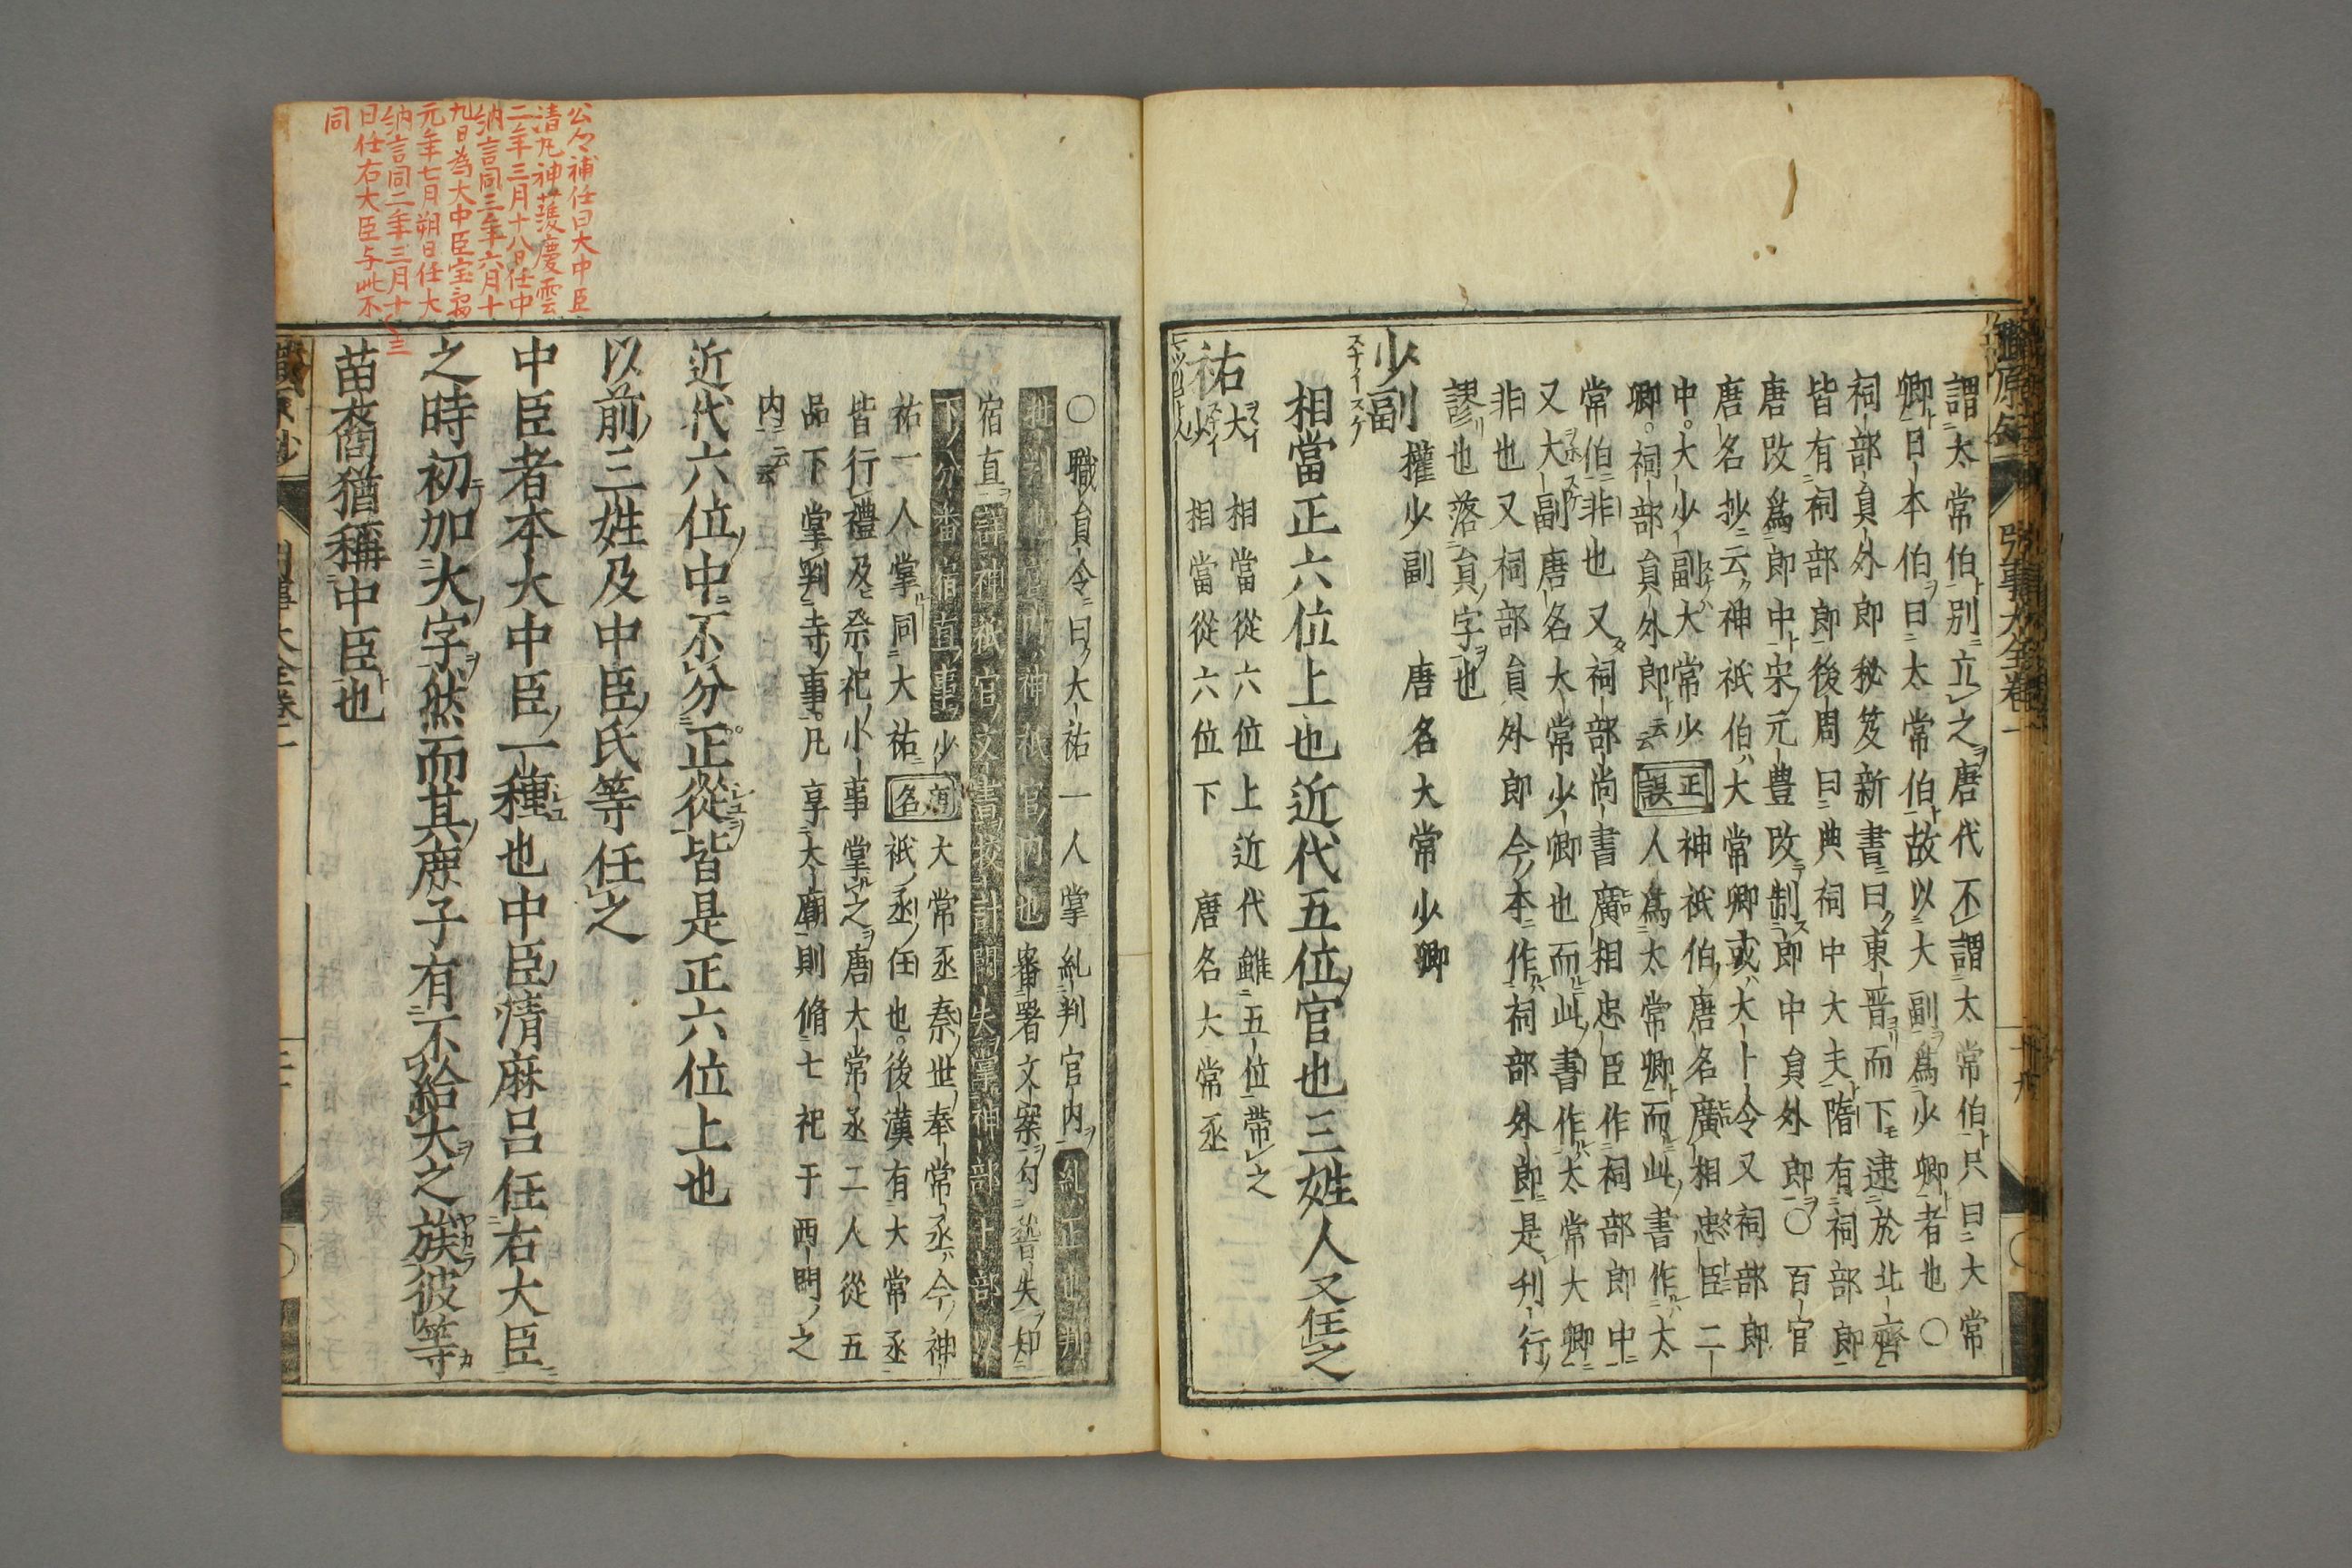 謂太常伯別立之唐代不謂太常伯只曰大常
卿曰本伯曰太常伯故以大副爲少卿者也〇
祠部員外郎秘笈新書曰東晋而下逮於北齊
皆有祠部郎後周曰典祠中大夫隋有祠部郎
唐改爲郎中宋元豊改制郎中員外郎〇百官
唐名抄云神祇伯大常卿或大卜令又祠部郎
中大少副大常少
卿祠部員外郎云云
正誤
神祇伯唐名廣相忠臣二
人爲太常卿而此書作太
常伯非也又祠部尚書廣相忠臣作祠部郎中
又大副唐名大常少卿也而此書作太常大卿
非也又祠部員外郎今本作祠部外郎是刋行
謬也落員字也
少副 權少副 唐名大常少卿
相當正六位上也近代五位官也三姓人又任之
祐 大 相當從六位上近代雖五位帶之
少 相當從六位下 唐名大常丞
〇職員令曰大祐一人掌糺判官内糺正也判
批判也官内神祇官内也審署文案勾稽失知
宿直
下八分番宿直事少
祐一人掌同大祐
唐名
大常丞秦世奉常丞今神
祇丞任也後漢有大常丞
皆行禮及祭祀小事掌之唐大常丞二人從五
品下掌判寺事凡享太廟則脩七祀于西門之
内云云
近代六位中不分正從皆是正六位上也
以前三姓及中臣氏等任之
中臣者本大中臣一種也中臣清麻呂任右大臣
之時初加大字然而其庶子有不給大之族彼等
苗裔猶稱中臣也
公卿補任曰大中臣
清丸神護慶雲
二年三月十八日任中
納言同三年六月十
九日為大中臣宝亀
元年七月朔日任大
納言同二年三月十三
日任右大臣与此不
同